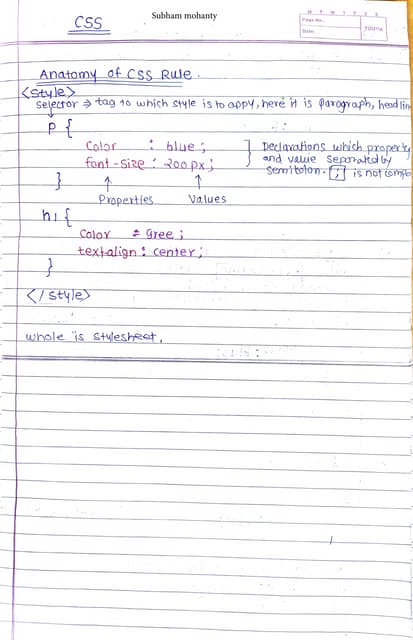 Subham mohanty
CSS
M T W T F S S
Page No.:
Date:
YOUVA
Anatomy of CSS Rule.
<style>
selector ⇒ tag to which style is to appy, here it is paragraph, headlin
p {
color : blue;
font-size : 200px;
}
Declarations which property
and value separated by
semicolon. ; is not comp
Properties
Values
h1 {
color : Gree;
text-align : center;
}
</style>
whole is stylesheet.